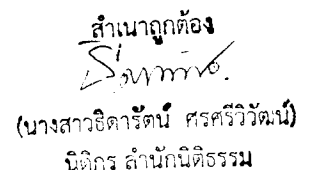 สำเนาถูกต้อง
(นางสาวธิดารัตน์ ศรศรีวิวัฒน์)
นิติกร สำนักนิติธรรม